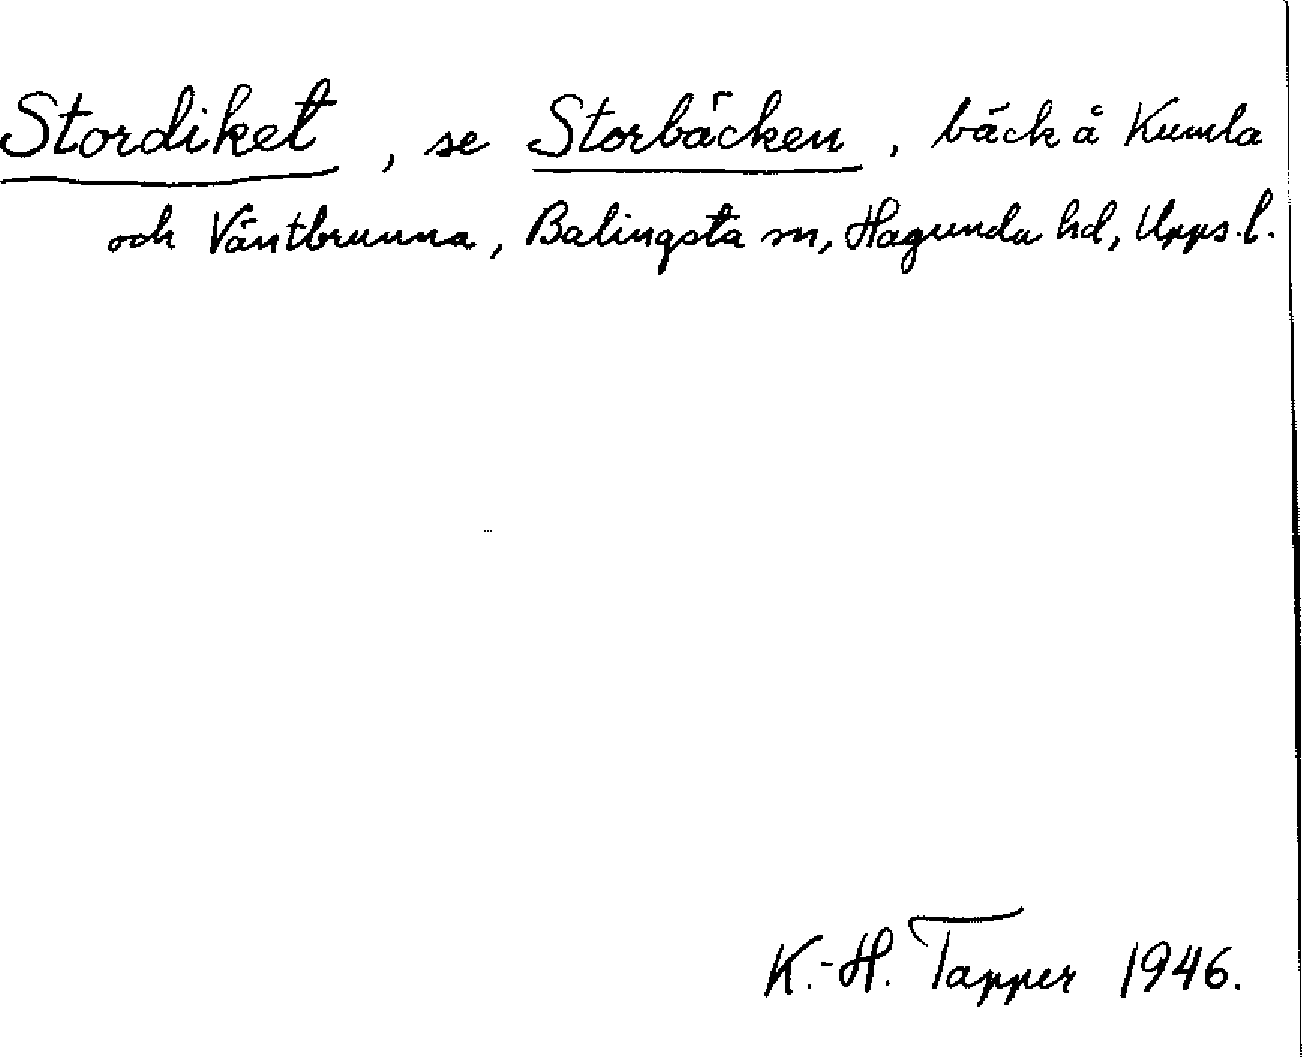 Stordiket, se Storbäcken, bäck å Kumla
och Väntbrunna, Balingsta sn, Hagunda hd, Upps. l.
K.-H. Tapper 1946.